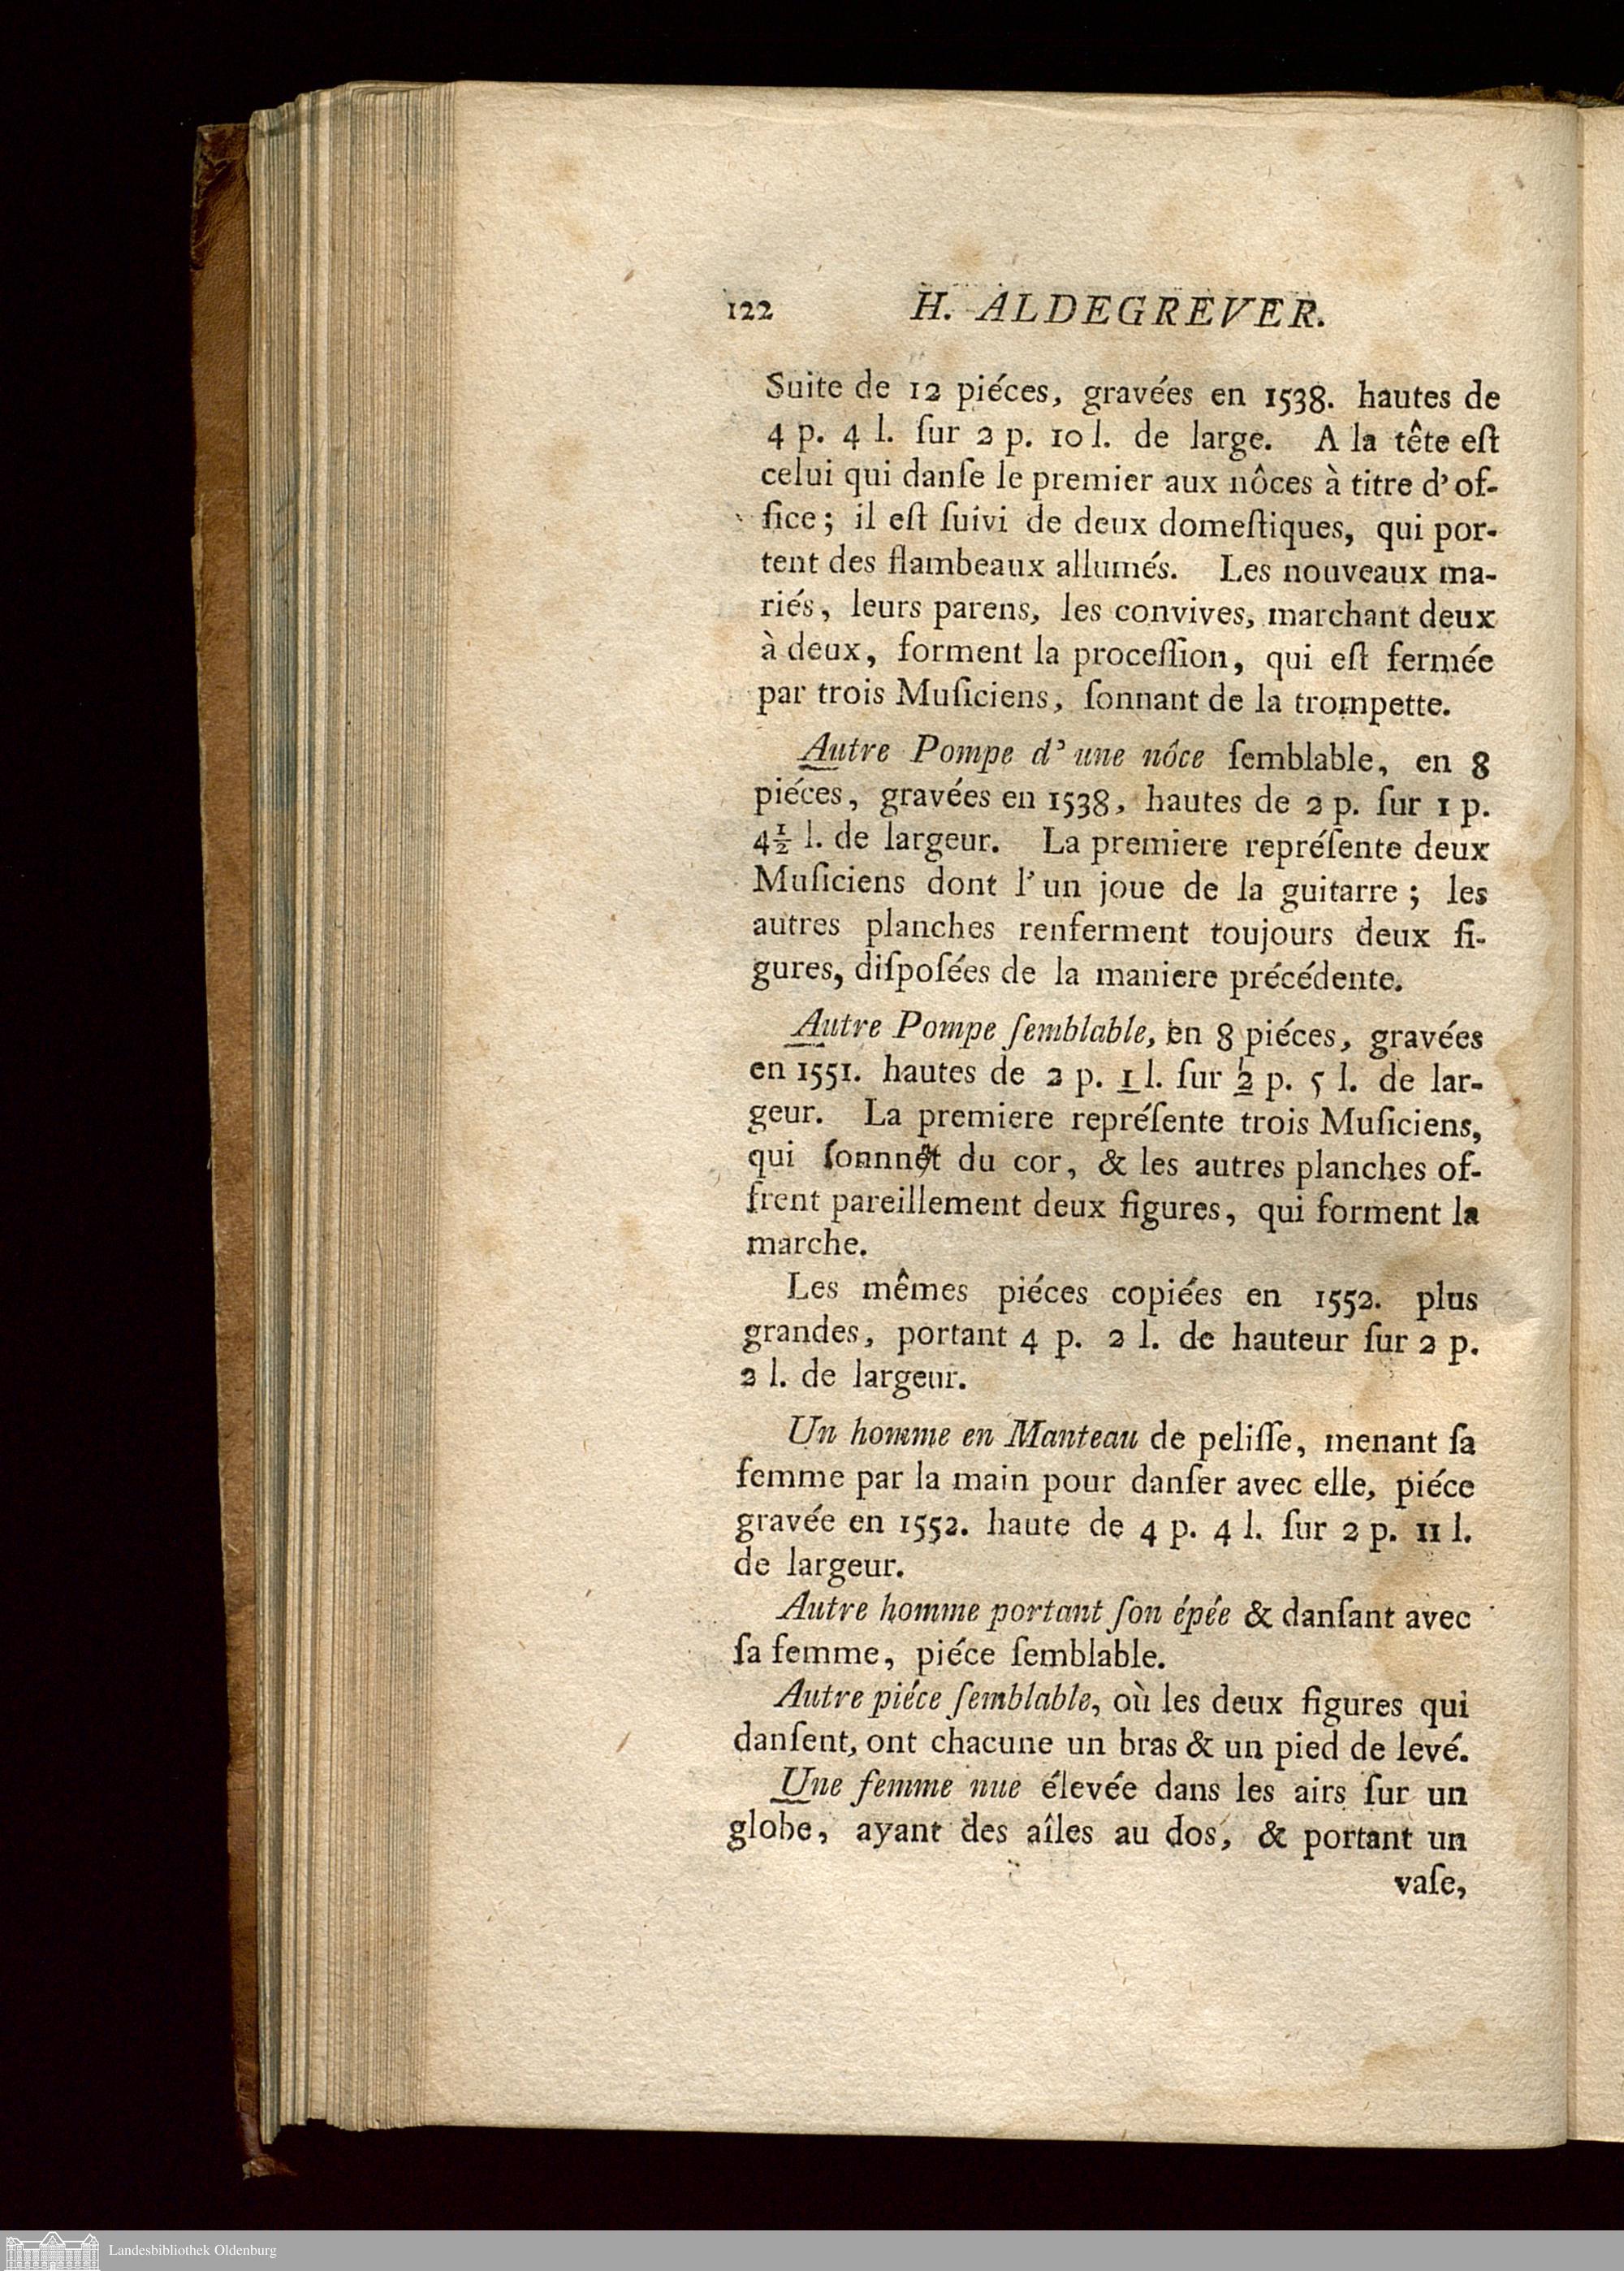 122 H. ALDEGREVER.
Suite de 12 piéces, gravées en 1538. hautes de
4 p. 4 l. ſur 2 p. 10 l. de large. A la tête eſt
celui qui danſe le premier aux nôces à titre d'of-
fice; il eſt ſuivi de deux domeſtiques, qui por-
tent des flambeaux allumés. Les nouveaux ma-
riés, leurs parens, les convives, marchant deux
à deux, forment la proceſſion, qui eſt fermée
par trois Muſiciens, ſonnant de la trompette.
Autre Pompe d'une nôce ſemblable, en 8
piéces, gravées en 1538, hautes de 2 p. ſur 1 p.
4½ l. de largeur. La premiere repréſente deux
Muſiciens dont l'un joue de la guitarre; les
autres planches renferment toujours deux fi-
gures, diſpoſées de la maniere précédente.
Autre Pompe ſemblable, en 8 piéces, gravées
en 1551. hautes de 2 p. 1 l. ſur 2 p. 5 l. de lar-
geur. La premiere repréſente trois Muſiciens,
qui ſonnnet du cor, & les autres planches of-
frent pareillement deux figures, qui forment la
marche.
Les mêmes piéces copiées en 1552. plus
grandes, portant 4 p. 2 l. de hauteur ſur 2 p.
2 l. de largeur.
Un homme en Manteau de peliſſe, menant ſa
femme par la main pour danſer avec elle, piéce
gravée en 1552. haute de 4 p. 4 l. ſur 2 p. 11 l.
de largeur.
Autre homme portant ſon épée & danſant avec
ſa femme, piéce ſemblable.
Autre piéce ſemblable, où les deux figures qui
danſent, ont chacune un bras & un pied de levé.
Une femme nue élevée dans les airs ſur un
globe, ayant des aîles au dos, & portant un
vaſe,
Landesbibliothek Oldenburg